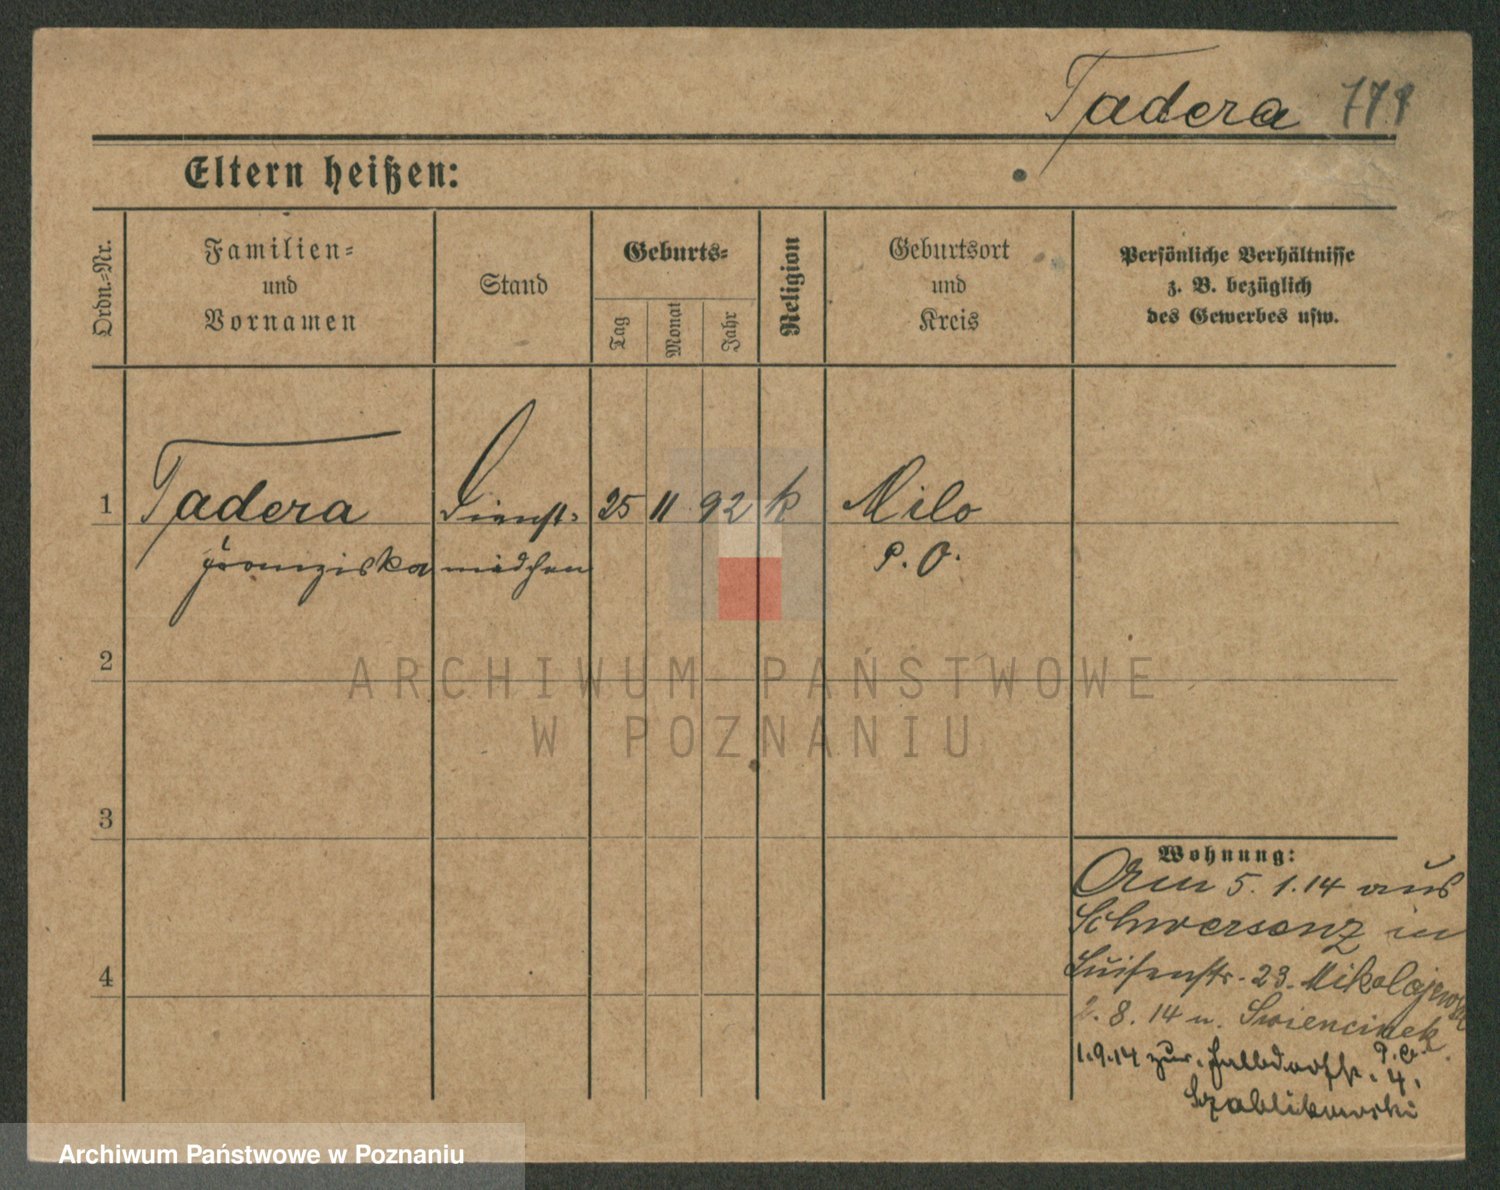 Tadera 771
Eltern heißen:
Ordn.-Nr.
Familien-
und
Vornamen
Stand
Geburts-
Tag
Monat
Jahr
Religion
Geburtsort
und
Kreis
Persönliche Verhältnisse
z. B. bezüglich
des Gewerbes usw.
1 Tadera Dienst- 25 11 92 k Milo
Franziska mädchen P. O.
2
3
4
Wohnung:
Am 5. 1. 14 aus
Schwersenz in
Luisenstr. 23. Mikolajewski
2. 8. 14 n. Swiencinek
P. O.
1.9.14 zur. Halbdorfstr. 4.
Szablikowski
ARCHIWUM PAŃSTWOWE
W POZNANIU
Archiwum Państwowe w Poznaniu